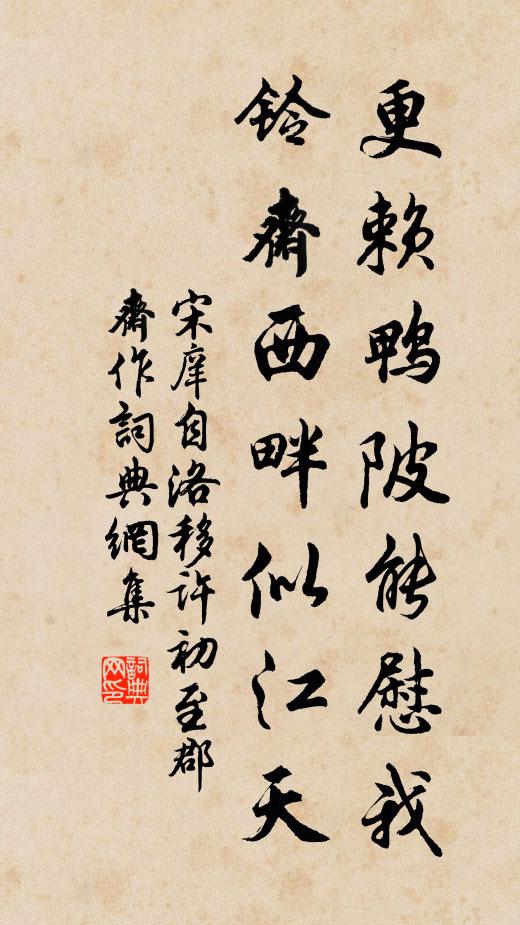 更赖鸭陂能慰我
铃斋西畔似江天
宋庠自洛移许初至郡
斋作词典網集
詞典网印